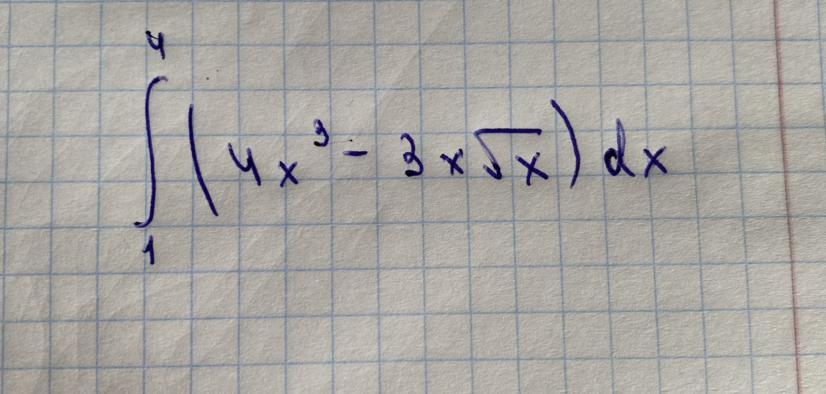 ∫₁⁴ (4x³ - 3x√x) dx